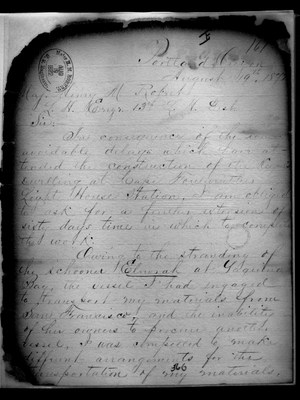 161
Portland Oregon
August 19th 187
Maj. Henry M Robert
U. S. Engr. 13th L. H. Dist
Sir
In consequence of the un-
avoidable delays which have at-
tended the construction of the
dwelling at Cape Foulweather
Light House Station, I am oblig
to ask for a further extension of
sixty days time in which to complete
the work.
Owing to the stranding of
the schooner Elnorah at Yaquina
Bay, the vessel I had engaged
to transport my materials from
San Francisco, and the inability
of her owners to procure another
vessel, I was compelled to make
different arrangements for the
transportation of my materials,
366